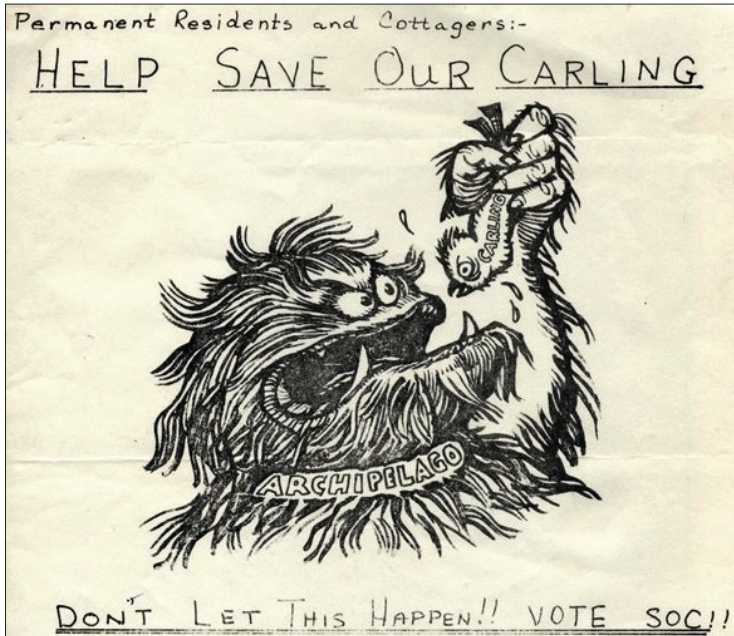 Permanent Residents and Cottagers:-
HELP SAVE OUR CARLING
CARLING
ARCHIPELAGO
DON'T LET THIS HAPPEN!! VOTE SOC!!